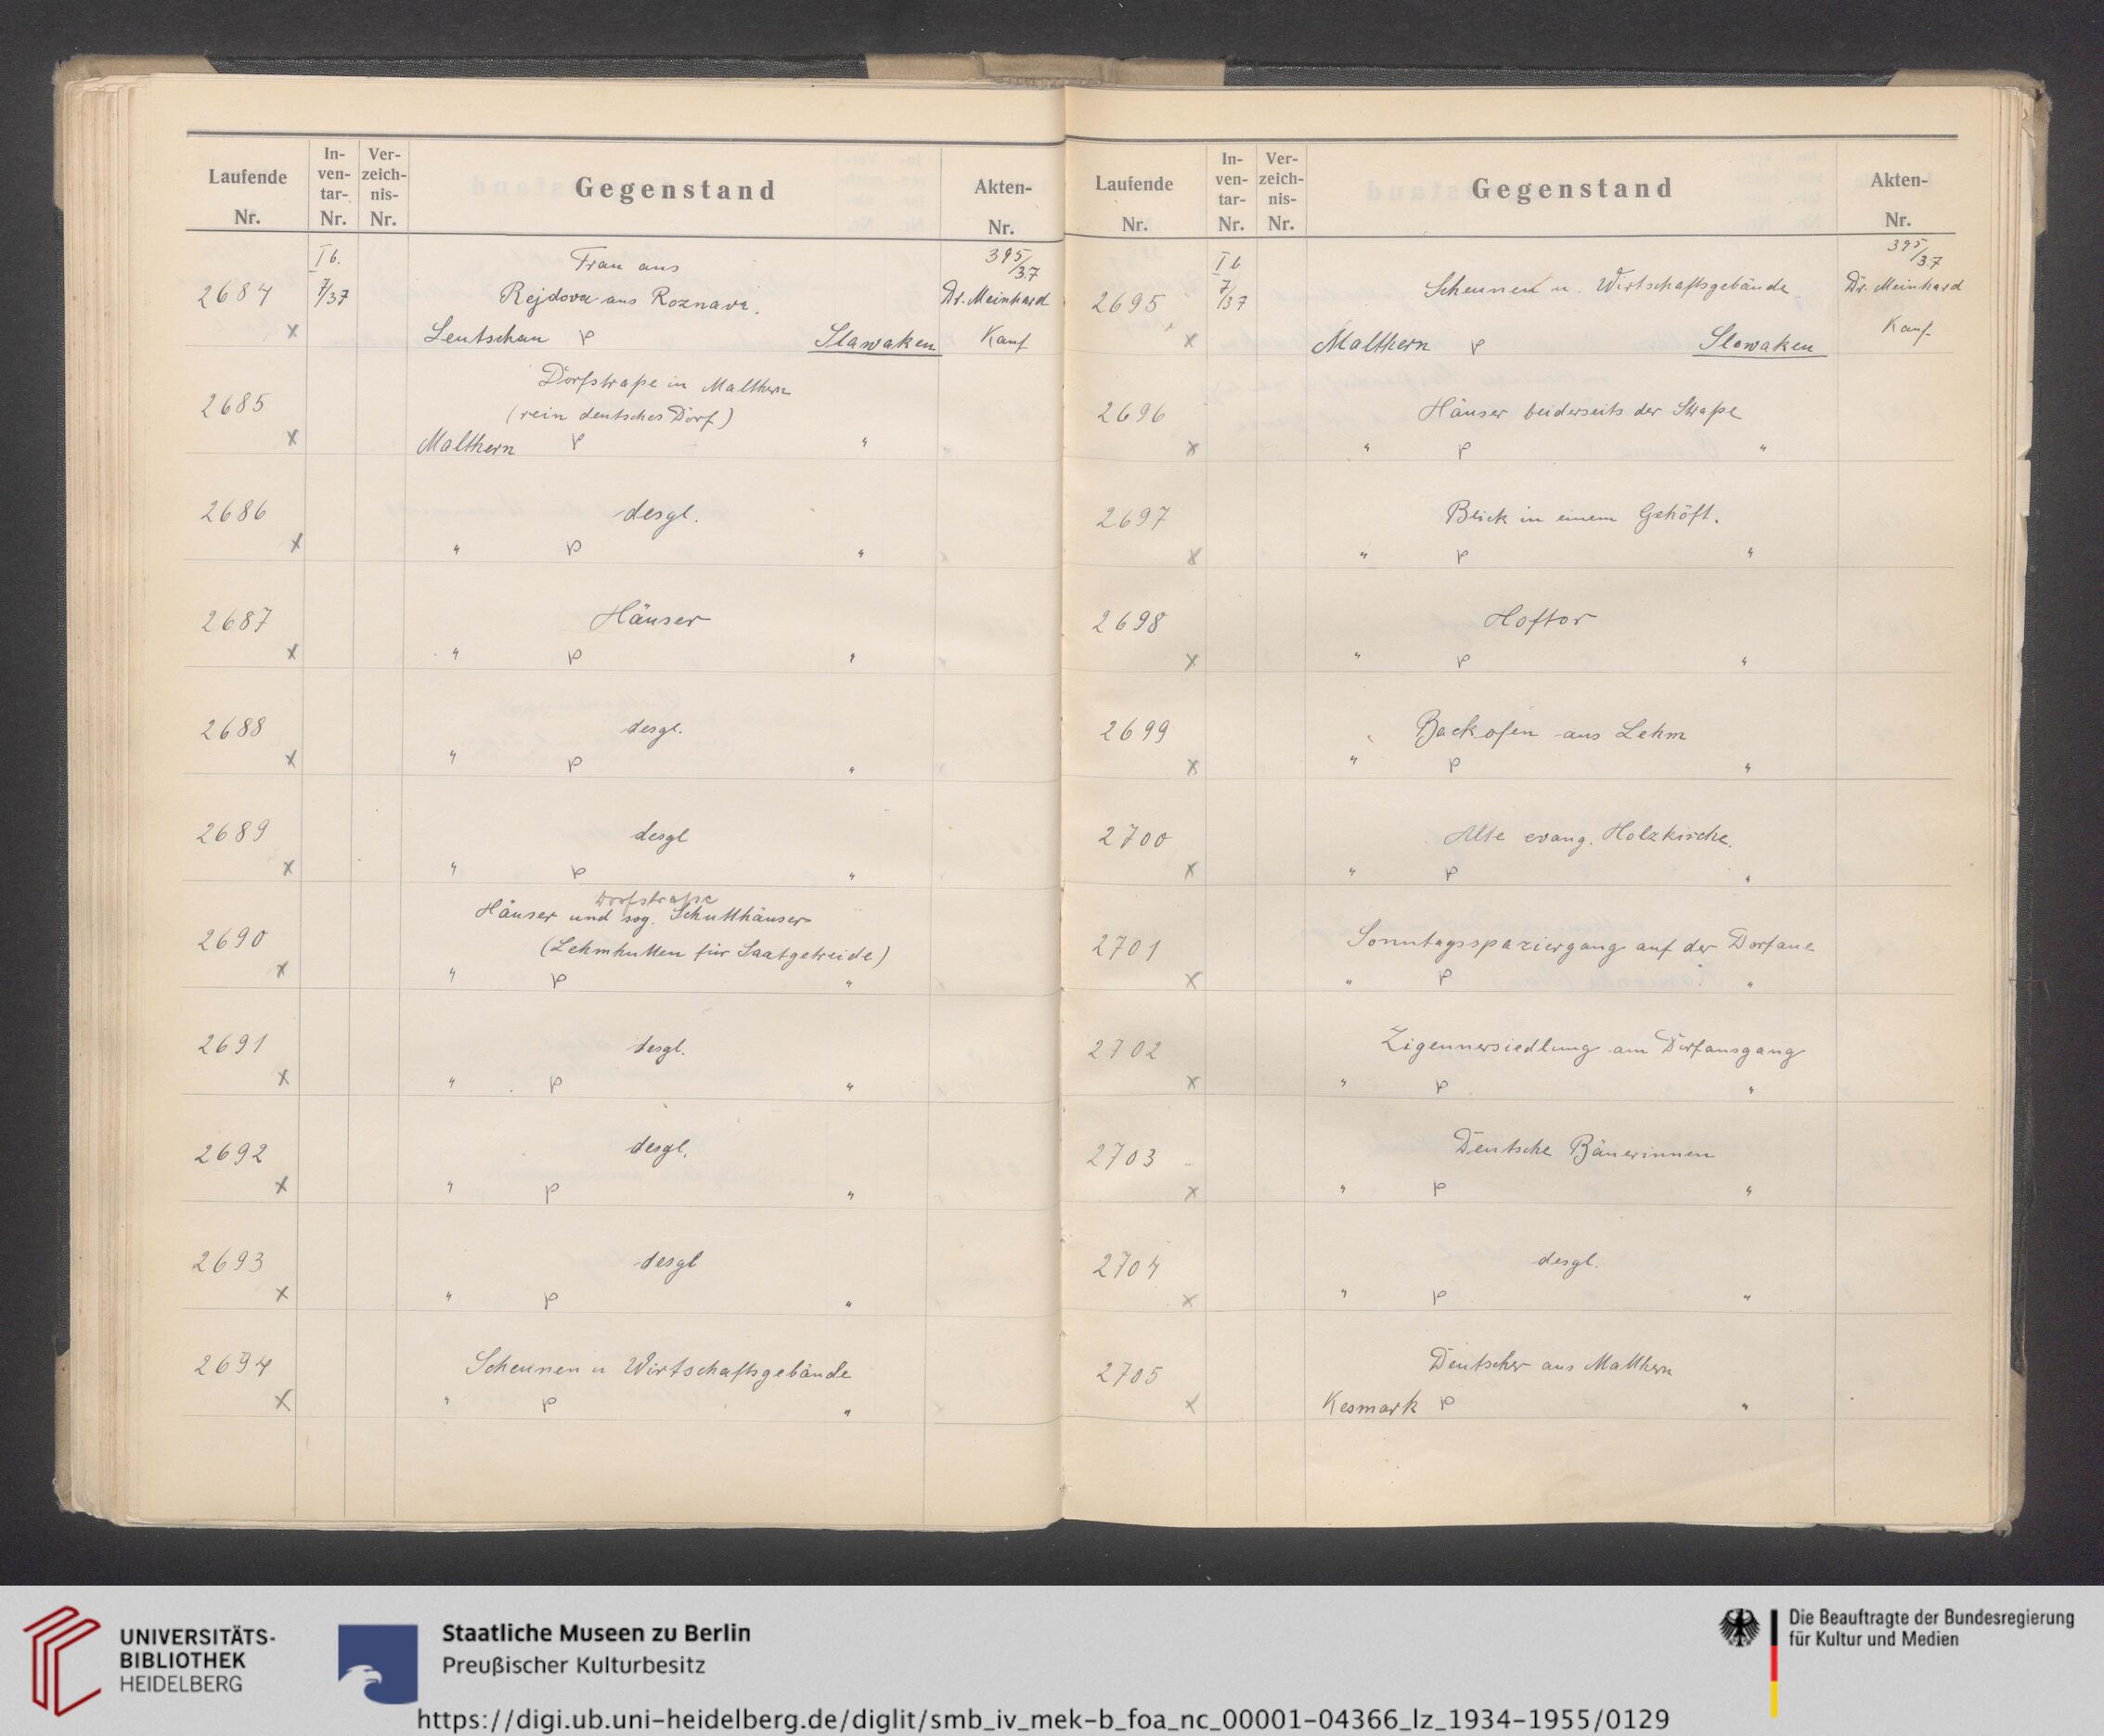 Laufende Nr. In-ven-tar- Nr. Ver-zeich-nis- Nr. Gegenstand Akten- Nr.
2684 I b. 7/37 Frau aus 395/37
Rejdova aus Roznava. Dr. Meinhard
x Leutschau P Slawaken Kauf
2685 Dorfstraße in Malthern
(rein deutsches Dorf)
x Malthern P "
2686 desgl.
x " P "
2687 Häuser
x " P "
2688 desgl.
x " P "
2689 desgl
x " P "
Dorfstraße
2690 Häuser und sog. Schutthäuser
(Lehmhutten für Saatgetreide)
x " P "
2691 desgl.
x " P "
2692 desgl.
x " P "
2693 desgl
x " P "
2694 Scheunen u Wirtschaftsgebäude
x " P "
Laufende Nr. In-ven-tar- Nr. Ver-zeich-nis- Nr. Gegenstand Akten- Nr.
I b 395/37
2695 7/37 Scheunen u. Wirtschaftsgebäude Dr. Meinhard
x Malthern P Slowaken Kauf
2696 Häuser beiderseits der Straße
x " P "
2697 Blick in einem Gehöft.
x " P "
2698 Hoftor
x " P "
2699 Backofen aus Lehm
x " P "
2700 Alte evang. Holzkirche.
x " P "
2701 Sonntagsspaziergang auf der Dorfaue
x " P "
2702 Zigeunersiedlung am Dorfausgang
x " P "
2703 Deutsche Bäuerinnen
x " P "
2704 desgl.
x " P "
2705 Deutscher aus Malthern
x Kesmark P "
UNIVERSITÄTS-
BIBLIOTHEK
HEIDELBERG
Staatliche Museen zu Berlin
Preußischer Kulturbesitz
Die Beauftragte der Bundesregierung
für Kultur und Medien
https://digi.ub.uni-heidelberg.de/diglit/smb_iv_mek-b_foa_nc_00001-04366_lz_1934-1955/0129